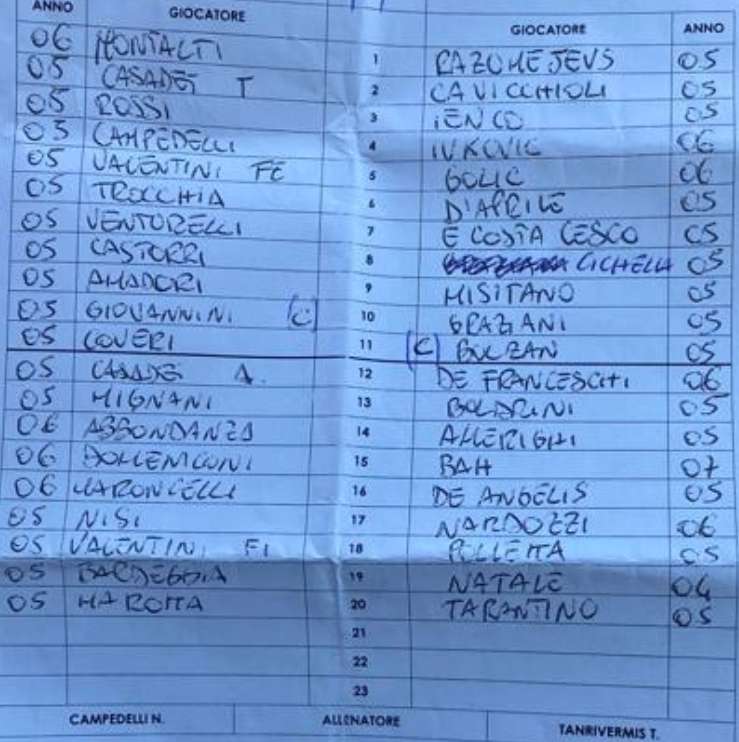 ANNO GIOCATORE GIOCATORE ANNO
06 MONTALTI 1 RAZUMEJEVS 05
05 CASADEI T 2 CAVICCHIOLI 05
05 ROSSI 3 IENCO 05
05 CAMPEDELLI 4 IVKOVIC 06
05 VALENTINI FE 5 GOLIC 06
05 TROCCHIA 6 D'APRILE 05
05 VENTURELLI 7 E COSTA CESCO 05
05 CASTORRI 8 CICHELLA 05
05 AMADORI 9 MISITANO 05
05 GIOVANNINI (C) 10 GRAZIANI 05
05 COVERI 11 (C) BOLZAN 05
05 CASADEI A. 12 DE FRANCESCHI 06
05 MIGNANI 13 BOLDRINI 05
06 ABBONDANZA 14 ALLERIGHI 05
06 DOLLEMCUNI 15 BAH 07
06 MARONCELLI 16 DE ANGELIS 05
05 NISI 17 NARDOZZI 06
05 VALENTINI FI 18 POLLETTA 05
05 BARDEGGIA 19 NATALE 04
05 MAROTTA 20 TARANTINO 05
21
22
23
CAMPEDELLI N. ALLENATORE TANRIVERMIS T.